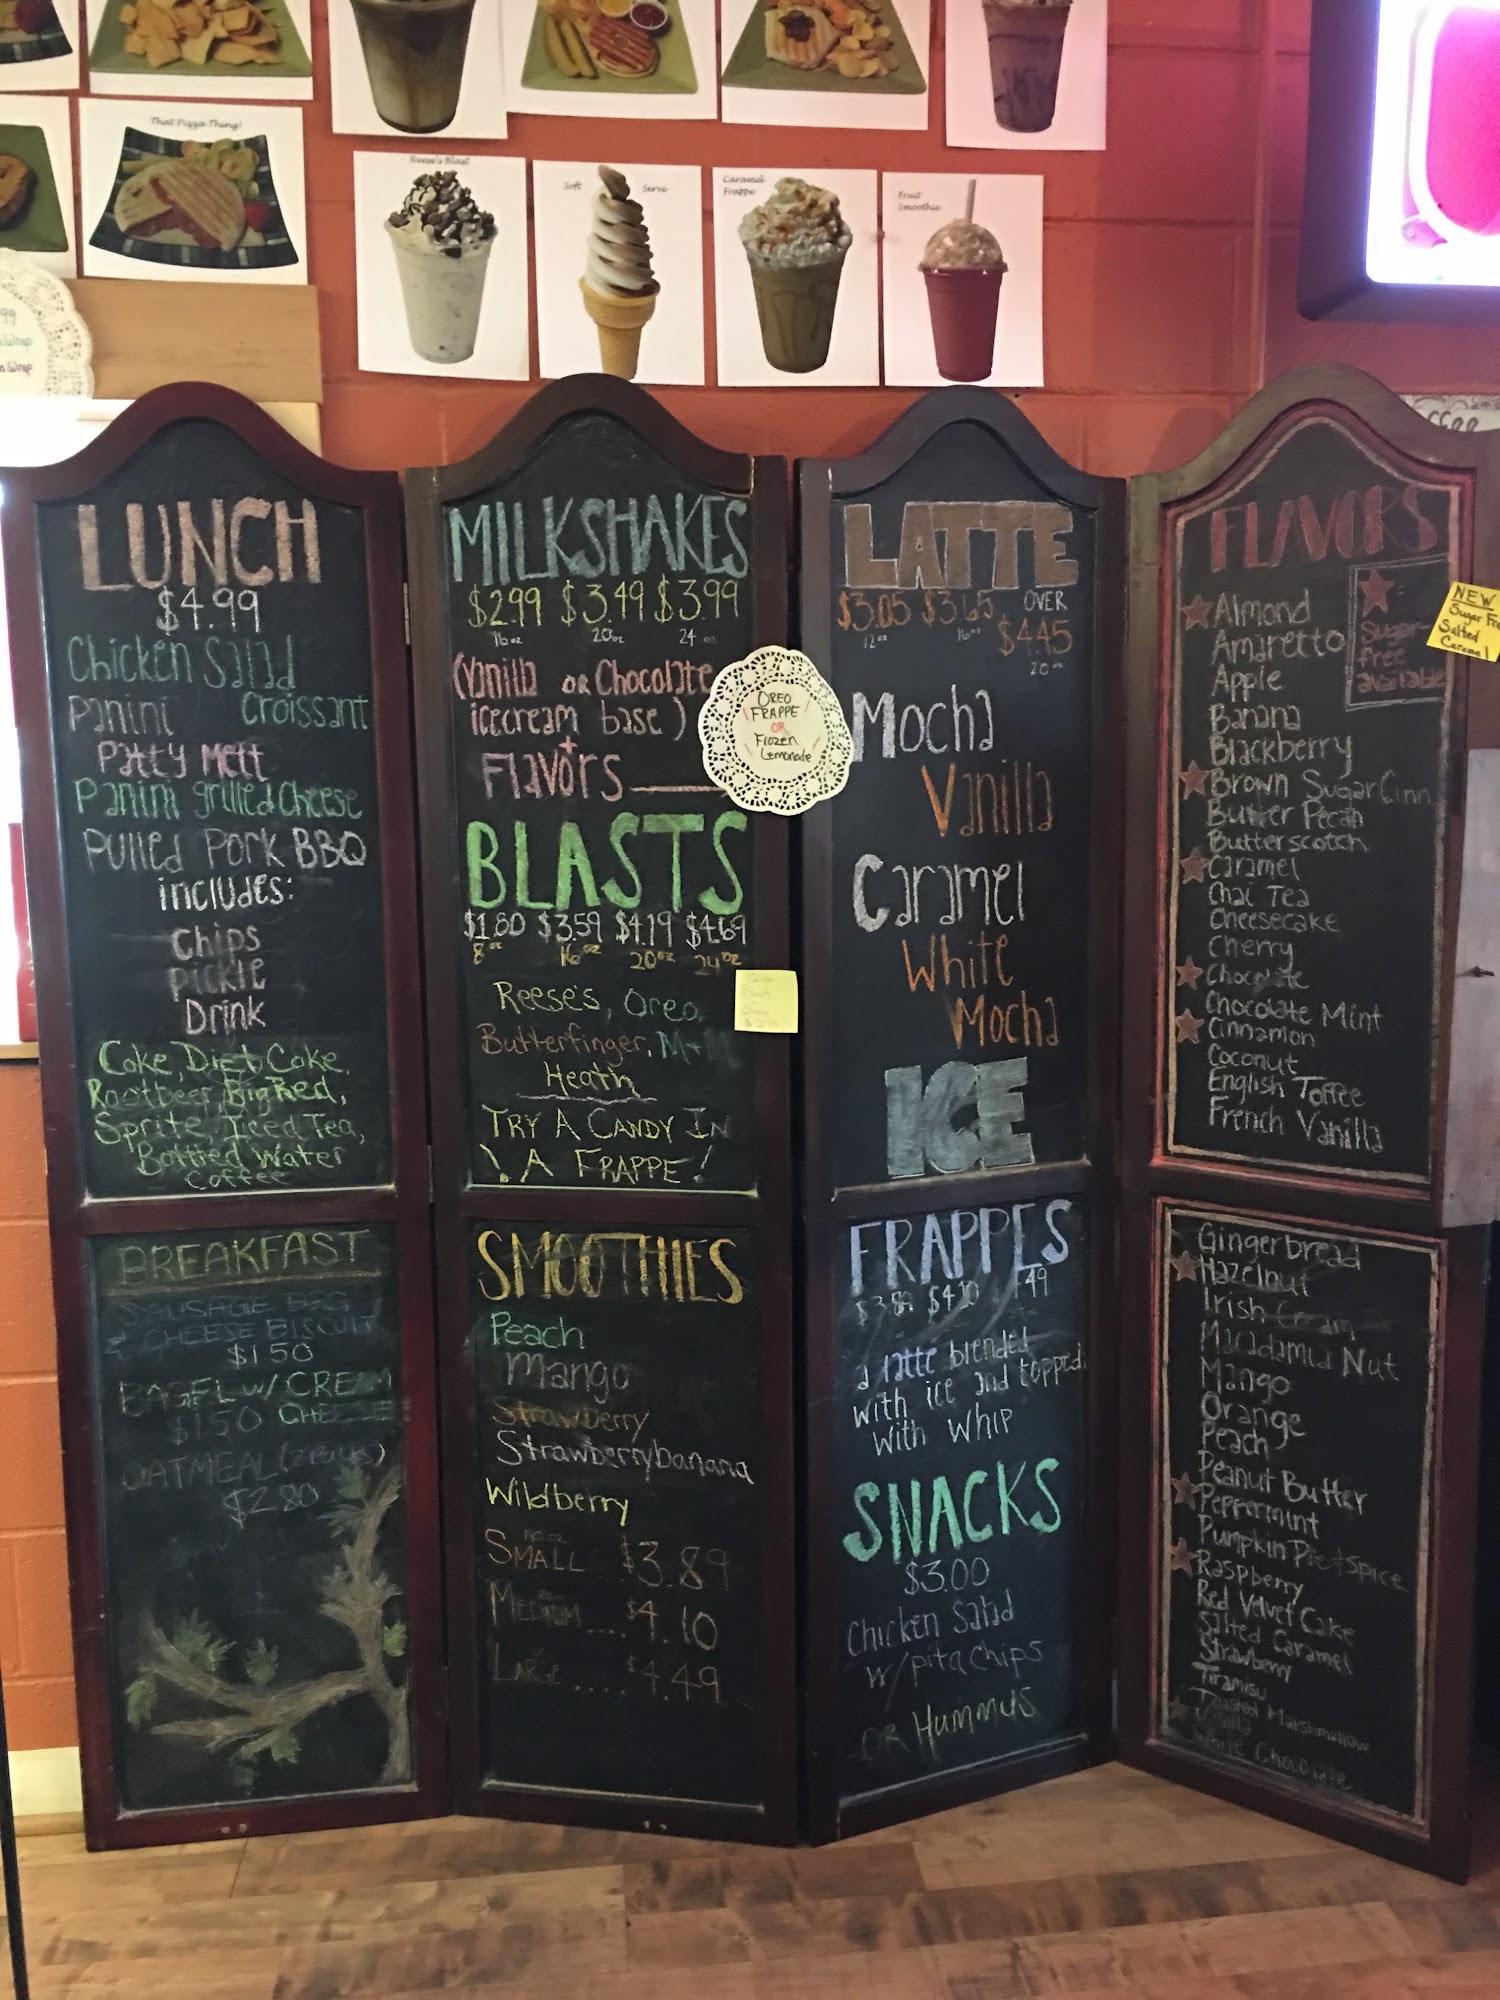 That Pizza Thing!
Reese's Blast
Soft Serve
Caramel
Frappe
Fruit
Smoothie
99
Wrap
Wrap
LUNCH
$4.99
Chicken Salad
Panini Croissant
Patty Melt
Panini grilled Cheese
Pulled Pork BBQ
includes:
Chips
Pickle
Drink
Coke, Diet Coke,
Rootbeer, Big Red,
Sprite, Iced Tea,
Bottled Water
Coffee
BREAKFAST
SAUSAGE EGG
& CHEESE BISCUIT
$1.50
BAGEL W/ CREAM
$1.50 CHEESE
OATMEAL (2 PACKS)
$2.80
MILKSHAKES
$2.99 $3.49 $3.99
16oz 20oz 24oz
(Vanilla OR Chocolate
icecream base)
+
Flavors
BLASTS
$1.80 $3.59 $4.19 $4.69
8oz 16oz 20oz 24oz
Reese's, Oreo,
Butterfinger, M+M
Heath
TRY A CANDY IN
! A FRAPPE!
SMOOTHIES
Peach
Mango
Strawberry
Strawberrybanana
Wildberry
SMALL .. $3.89
MEDIUM .... $4.10
LARGE ..... $4.49
OREO
FRAPPE
OR
Frozen
Lemonade
LATTE
$3.05 $3.65 OVER
12oz 16oz $4.45
20oz
Mocha
Vanilla
Caramel
White
Mocha
ICE
FRAPPES
$3.89 $4.10 49
a latte blended
with ice and topped
with WHIP
SNACKS
$3.00
Chicken Salad
w/pita chips
OR Hummus
FLAVORS
Sugar-
free
available
NEW
Sugar Fre
Salted
Caramel
Almond
Amaretto
Apple
Banana
Blackberry
Brown Sugar Cinn
Butter Pecan
Butterscotch
Caramel
Chai Tea
Cheesecake
Cherry
Chocolate
Chocolate Mint
Cinnamon
Coconut
English Toffee
French Vanilla
Gingerbread
Hazelnut
Irish Cream
Macadamia Nut
Mango
Orange
Peach
Peanut Butter
Peppermint
Pumpkin Pie+Spice
Raspberry
Red Velvet Cake
Salted Caramel
Strawberry
Tiramisu
Toasted Marshmallow
Vanilla
White Chocolate